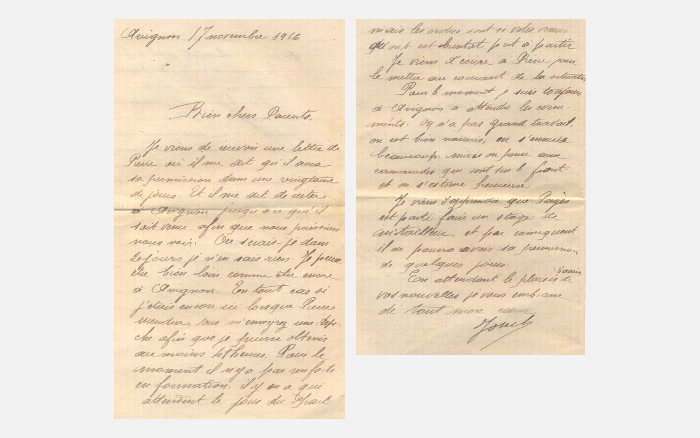 Avignon 17 novembre 1916
Bien chers Parents.
Je viens de recevoir une lettre de
Pierre où il me dit qu'il aura
sa permission dans une vingtaine
de jours. Et il me dit de rester
à Avignon jusqu'à ce qu'il
soit venu afin que nous puissions
nous voir. Où serais-je dans
20 jours je n'en sais rien. Je peux
être bien loin comme être encore
à Avignon. En tout cas si
j'étais encore ici lorsque Pierre
viendra, vous m'enverrez une dépê-
che afin que je puisse obtenir
au moins 48 heures. Pour le
moment il n'y a pas renforts
en formation, il y en a qui
attendent le jour du départ
mais les ordres sont si vites venus
qu'on est bientôt prêt à partir
Je viens d'écrire à Pierre pour
le mettre au courant de la situation
Pour le moment je suis toujours
à Avignon à attendre les évène-
ments. Il n'y a pas grand travail,
on est bien nourris, on s'ennuie
beaucoup mais on pense aux
camarades qui ont sur le front
et on s'estime heureux.
Je viens d'apprendre que Pagès
est parti faire un stage de
mitrailleur et par conséquent
il ne pourra avoir sa permission
de quelques jours.
En attendant le plaisir d'avoir
de vos nouvelles je vous embrasse
de tout mon cœur
Joseph